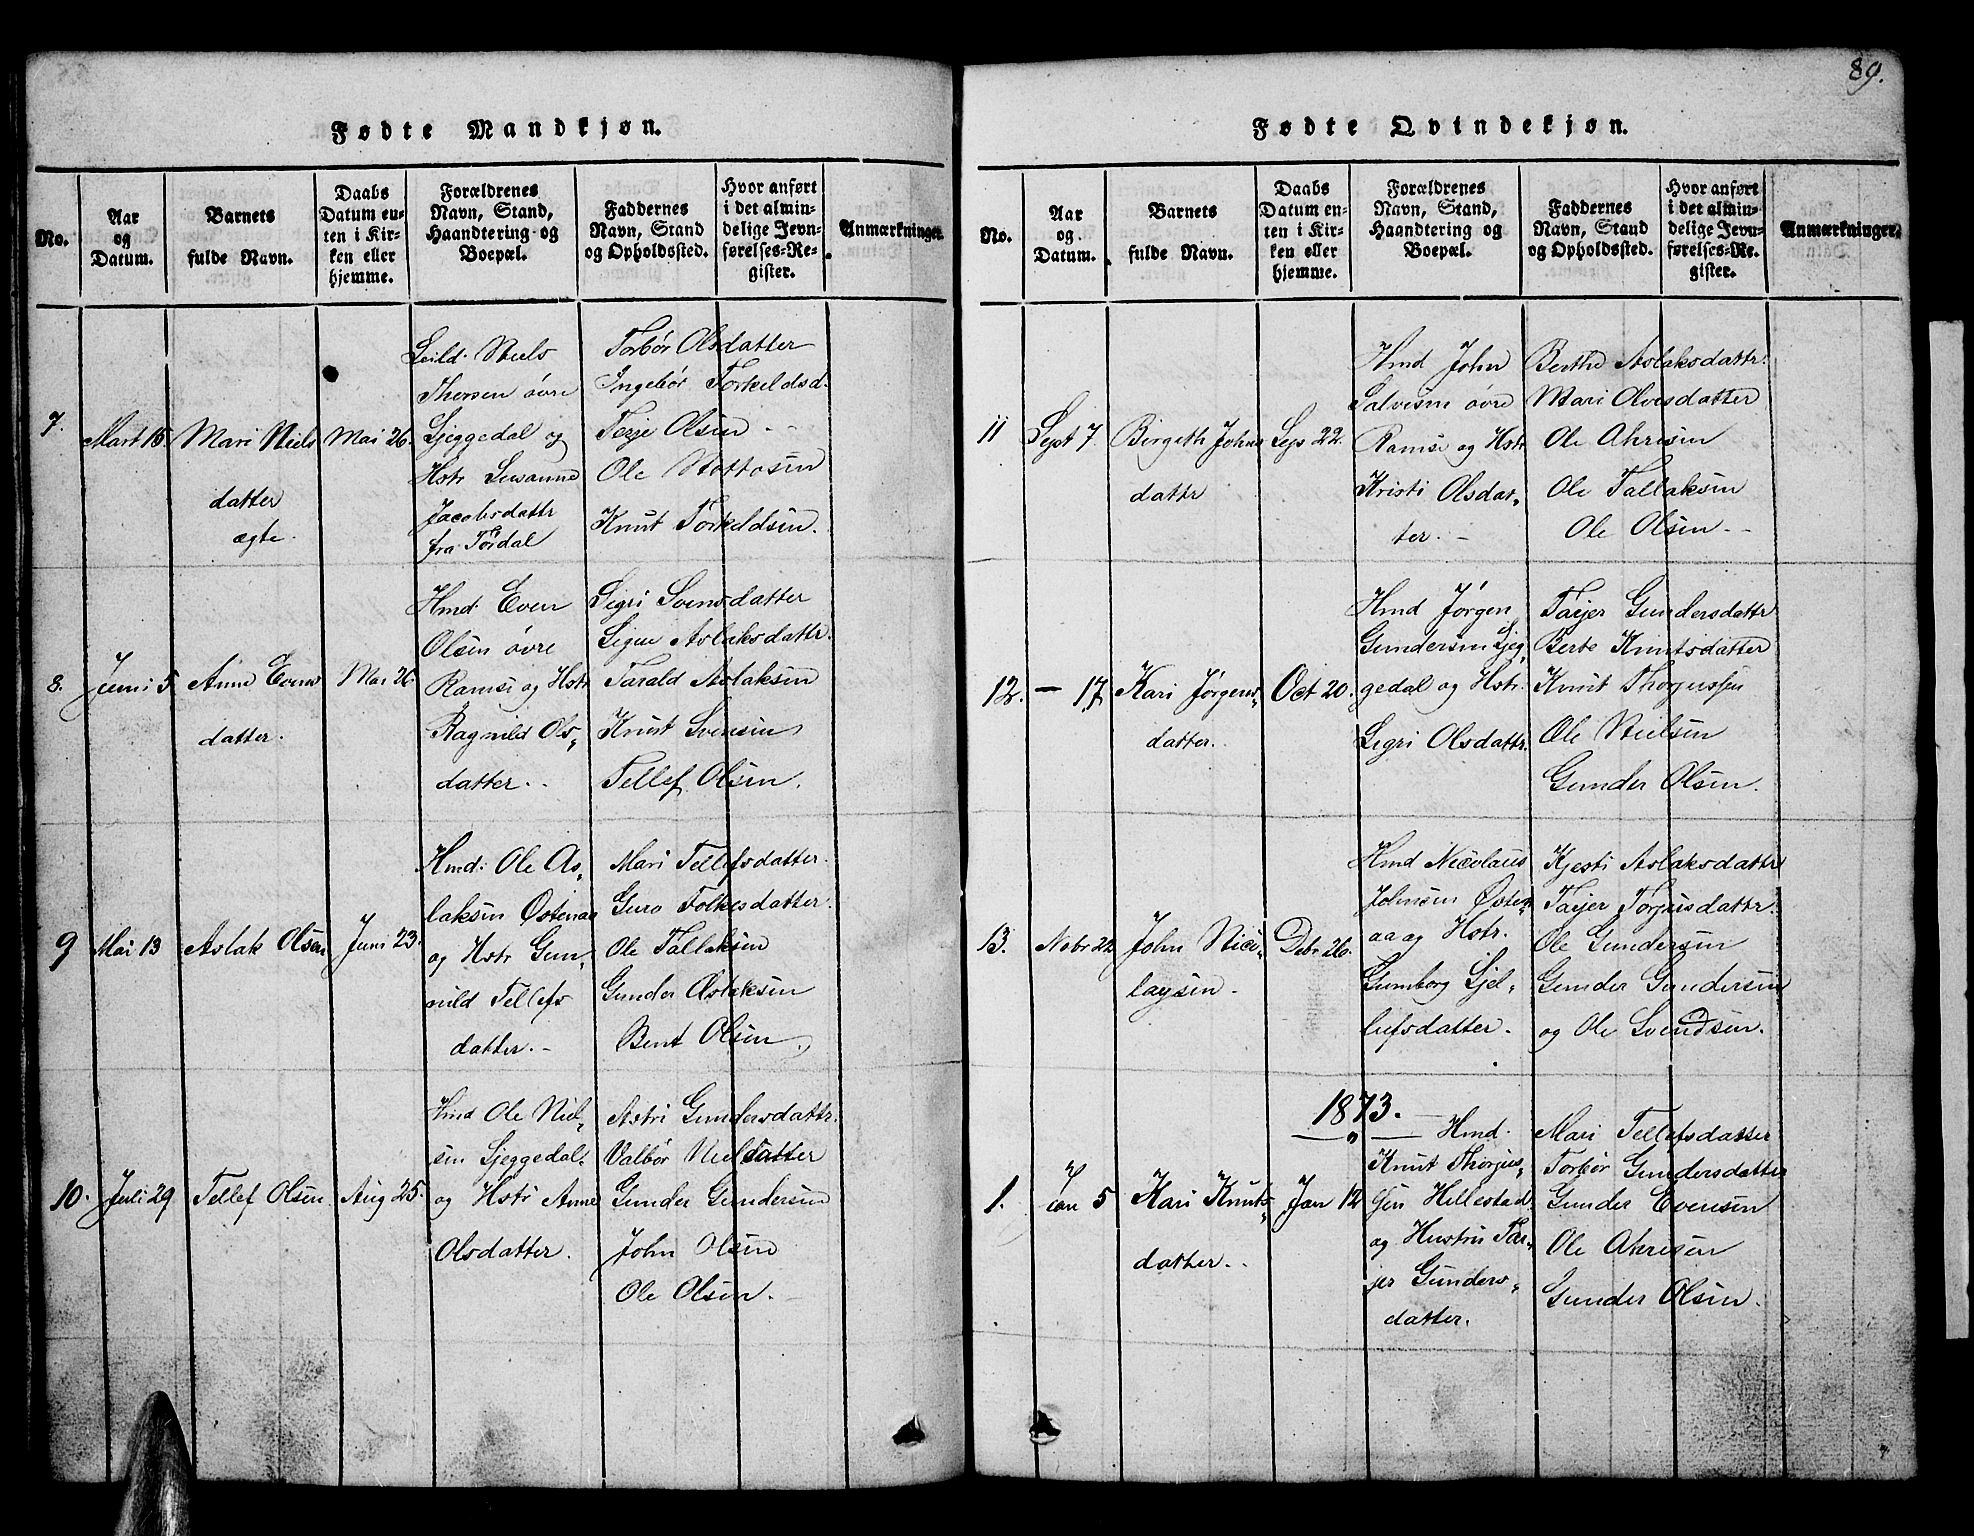 89.
Fødte Mandkjøn.
No.
Aar
og
Datum.
Barnets
fulde Navn.
Daabs
Datum en-
ten i Kir-
ken eller
hjemme.
Forældrenes
Navn, Stand,
Haandtering og
Boepæl.
Faddernes
Navn, Stand
og Opholdssted.
Hvor anført
i det almin-
delige Jevn-
førelses-Re-
gister.
Anmærkninger.
7.
Mart 15
Mari Niels
datter
ægte.
Mai 26.
Leild. Niels
Thorsen øvre
Ljeggedal og
Hstr Susanne
Jacobsdattr
fra Tørdal
Torbør Olsdatter
Ingebør Torkeldsd.
Terje Olsen
Ole Nottosen
Knut Torkeldsen.
8.
Juni 5
Anne Evens
datter.
Mai 26.
Hmd. Even
Olsen øvre
Ramse og Hstr
Ragnild Ols„
datter.
Sigri Svensdatter
Signe Aslaksdattr.
Tarald Aslaksen
Knut Svensen
Tellef Olsen.
9
Mai 13
Aslak Olsen
Juni 23.
Hmd: Ole As„
laksen Østenaa
og Hstr Gun„
nild Tellefs
datter.
Mari Tellefsdatter.
Guro Folkesdatter.
Ole Tallaksen
Gunder Aslaksen
Bent Olsen.
10.
Juli 29
Tellef Olsen
Aug 25.
Hmd Ole Niel„
sen Ljeggedal
og Hstr Anne
Olsdatter.
Astri Gundersdattr.
Valbør Nielsdatter
Gunder Gundersen
John Olsen
Ole Olsen.
Fødte Qvindekjøn.
No.
Aar
og
Datum.
Barnets
fulde Navn.
Daabs
Datum en-
ten i Kir-
ken eller
hjemme.
Forældrenes
Navn, Stand,
Haandtering og
Boepæl.
Faddernes
Navn, Stand
og Opholdssted.
Hvor anført
i det almin-
delige Jevn-
førelses-Re-
gister.
Anmærkninger.
11
Sept 7.
Birgeth Johns
dattr
Sep 22.
Hmd John
Salvesen øvre
Ramse og Hstr
Kristi Olsdat„
ter.
Berthe Aslaksdattr.
Mari Olvesdatter
Ole Akresen
Ole Tallaksen
Ole Olsen.
12.
— 17
Kari Jørgens„
datter.
Oct 20.
Hmd Jørgen
Gundersen Ljeg„
gedal og Hstr.
Sigri Olsdattr.
Tarjer Gundersdattr
Berte Knutsdatter
Knut Thorjussen
Ole Nielsen
Gunder Olsen.
13.
Nobr 22
John Nico„
laysen.
Debr 26.
Hmd Nicolaus
Johnsen Østen„
aa og Hstr.
Gunborg Ljel„
lefsdatter.
Kjesti Aslaksdattr
Tarjer Torjusdattr.
Ole Gundersen
Gunder Gundersen
og Ole Svendsen.
1873.
1.
Jan 5
Kari Knuts„
datter.
Jan 12
Hmd.
Knut Thorjus„
sen Hillestad
og Hustru Tar„
jer Gunders„
datter.
Mari Tellefsdatter
Torbør Gundersdatter
Gunder Evensen
Ole Akresen
Gunder Olsen.